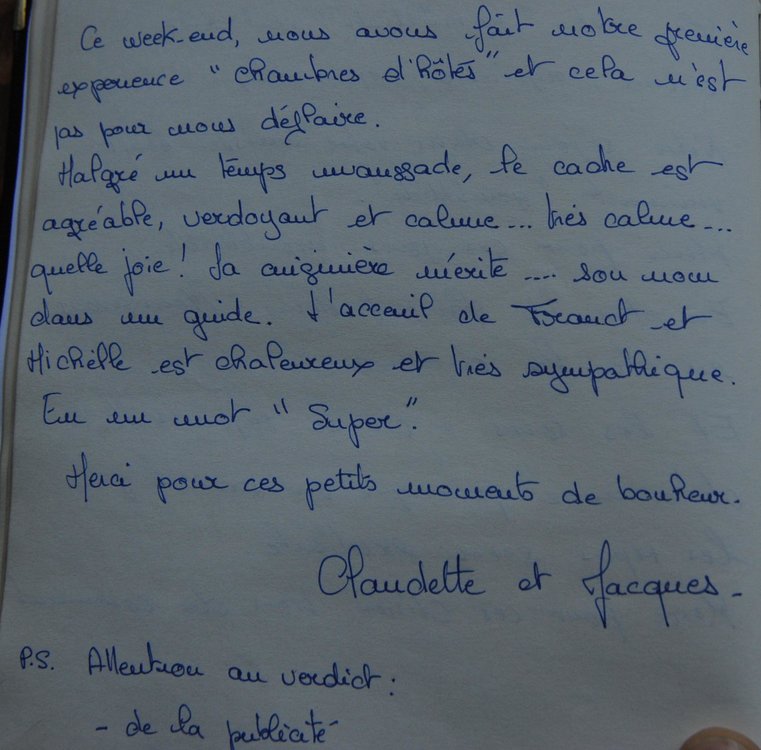 Ce week-end, nous avons fait notre première
experience "chambres d'hôtes" et cela n'est
pas pour nous déplaire.
Malgré un temps maussade, le cadre est
agréable, verdoyant et calme... très calme...
quelle joie ! La cuisinière mérite .... son nom
dans un guide. L'acceuil de Franck et
Michèlle est chaleureux et très sympathique.
En un mot "Super".
Merci pour ces petits moments de bonheur.
Claudette et Jacques -
P.S. Attention au verdict :
- de la publicité